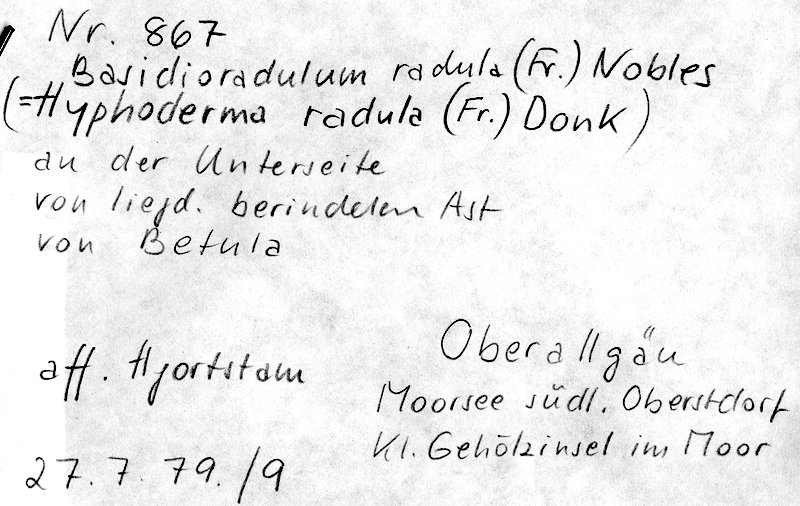 Nr. 867
Basidioradulum radula (Fr.) Nobles
(=Hyphoderma radula (Fr.) Donk)
an der Unterseite
von liegd. berindeten Ast
von Betula
aff. Hjortstam
27.7.79./9
Oberallgäu
Moorsee südl. Oberstdorf
Kl. Gehölzinsel im Moor